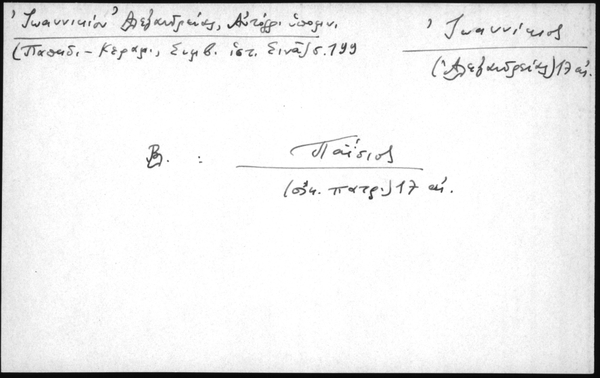 Ἰωαννικίου Ἀλεξανδρείας, Αὐτόγρ. ὑπόμν.
(Παπαδ.-Κεραμ., Συμβ. ἱστ. Σινᾶ) σ. 199
Ἰωαννίκιος
(Ἀλεξανδρείας) 17 αἰ.
Βλ. :
Παΐσιος
(οἰκ. πατρ.) 17 αἰ.